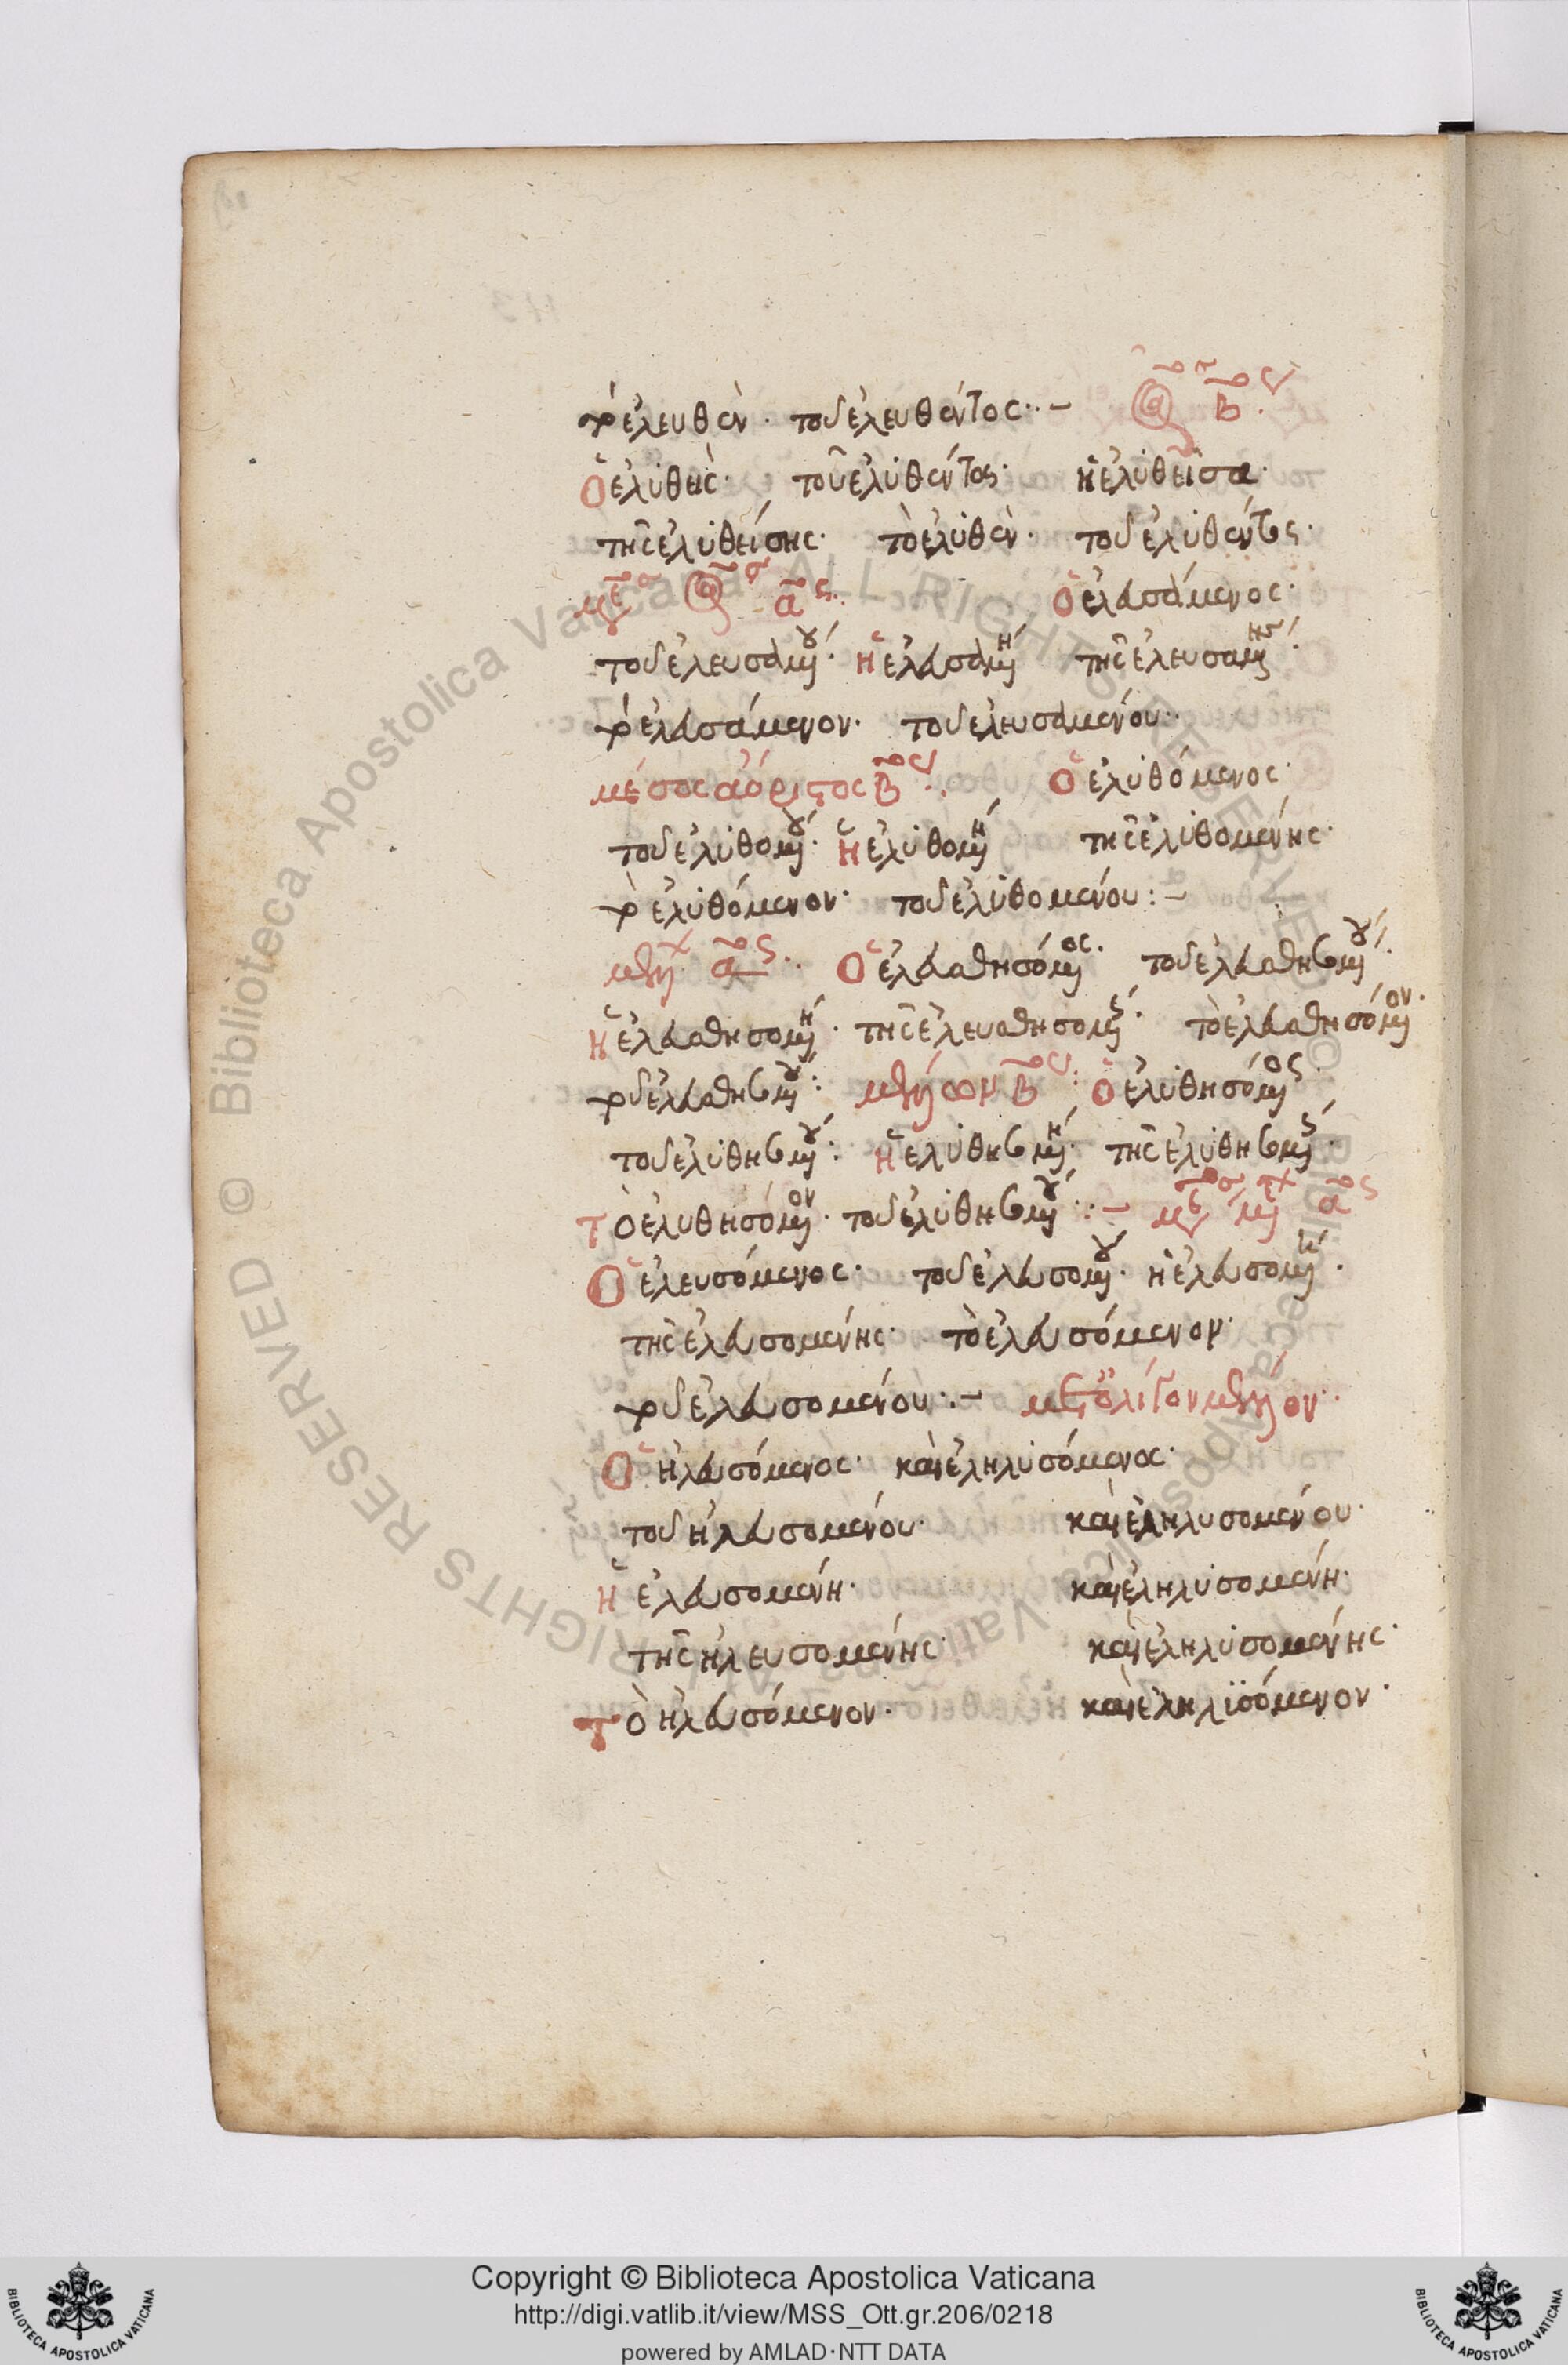 τὸ ἐλευθὲν· τοῦ ἐλευθέντος:–
β
Ὁ ἐλυθεὶς· τοῦ ἐλυθέντος· ἡ ἐλυθεῖσα·
τῆς ἐλυθείσης· τὸ ἐλυθὲν· τοῦ ἐλυθέντος·
α Ὁ ἐλευσάμενος·
τοῦ ἐλευσαμου· ἡ ἐλευσαμη τῆς ἐλευσαμης·
τὸ ἐλευσάμενον· τοῦ ἐλευσαμένου·
μέσος ἀόριστος β Ὁ ἐλυθόμενος·
τοῦ ἐλυθομου· ἡ ἐλυθομη τῆς ἐλυθομένης·
τὸ ἐλυθόμενον· τοῦ ἐλυθομένου:–
α Ὁ ἐλευθησόμος· τοῦ ἐλευθησομου·
ἡ ἐλευθησομη· τῆς ἐλευθησομης· τὸ ἐλευθησόμον·
τοῦ ἐλευθησομου: β: ὁ ἐλυθησόμος·
τοῦ ἐλυθησομου: ἡ ἐλυθησομη· τῆς ἐλυθησομης·
Τὸ ἐλυθησόμον· τοῦ ἐλυθησομου:– α
Ὁ ἐλευσόμενος· τοῦ ἐλευσομου· ἡ ἐλευσομη·
τῆς ἐλευσομένης· τὸ ἐλευσόμενον·
τοῦ ἐλευσομένου:– μετ' ὀλίγον
Ὁ ἠλευσόμενος· καὶ ἐληλυσόμενος·
τοῦ ἠλευσομένου· καὶ ἐληλυσομένου·
Ἡ ἐλευσομένη· καὶ ἐληλυσομένη·
τῆς ἠλευσομένης· καὶ ἐληλυσομένης·
Τὸ ἠλευσόμενον· καὶ ἐληλϊσόμενον·
Copyright © Biblioteca Apostolica Vaticana
http://digi.vatlib.it/view/MSS_Ott.gr.206/0218
powered by AMLAD·NTT DATA